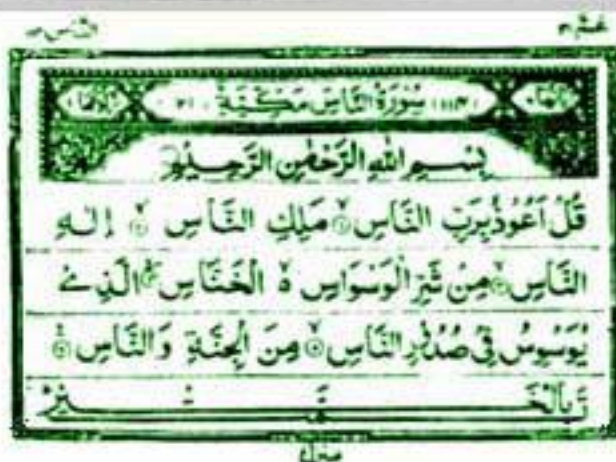 عم ٣٠ الناس ١١٤
(١١٤) سُوْرَةُ النَّاسِ مَكِّيَّةٌ (٢١)
بِسْمِ اللهِ الرَّحْمٰنِ الرَّحِيْمِ
قُلْ اَعُوْذُ بِرَبِّ النَّاسِ ۙ مَلِكِ النَّاسِ ۙ اِلٰهِ
النَّاسِ ۙ مِنْ شَرِّ الْوَسْوَاسِ ۙ الْخَنَّاسِ ۙ الَّذِيْ
يُوَسْوِسُ فِيْ صُدُوْرِ النَّاسِ ۙ مِنَ الْجِنَّةِ وَالنَّاسِ
منزل